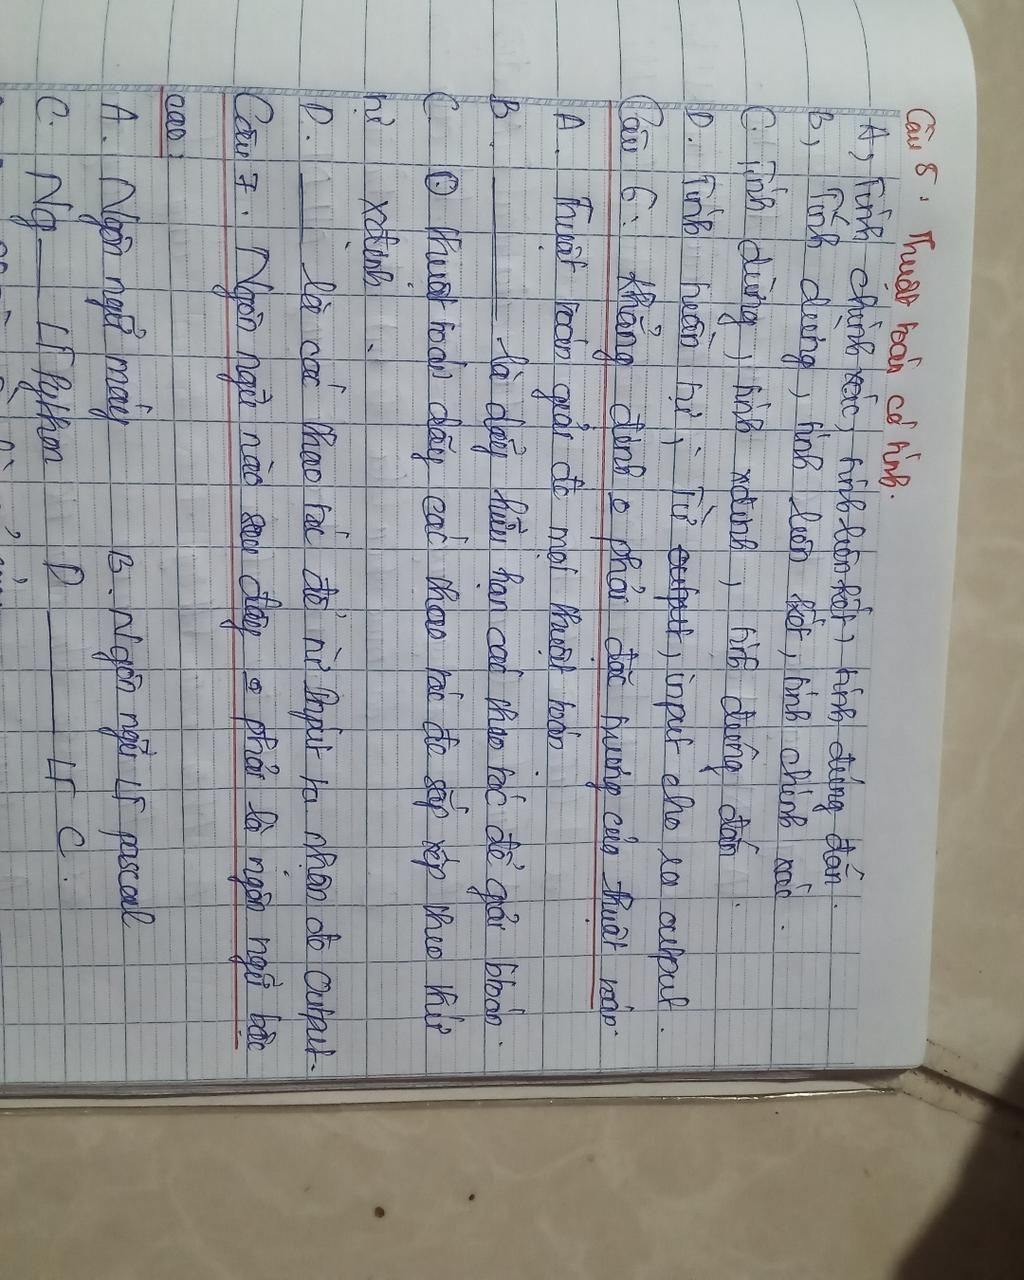 Câu 8. Thuật toán có tính.
A, Tính chính xác, tính liên kết, tính đúng đắn.
B, Tính dừng, tính liên kết, tính chính xác.
C. Tính dừng, tính xđịnh, tính đúng đắn.
D. Tính tuần tự; Từ output, input cho ra output.
Câu 6: Khẳng định o phải đặc trưng của thuật toán.
A. Thuật toán giải đc mọi thuật toán
B. ______ là dãy hữu hạn các thao tác để giải btoán.
C Thuật toán dãy các thao tác đc sắp xếp theo thứ
tự xđịnh.
D. ______ là các thao tác để từ Input ta nhận đc Output.
Câu 7. Ngôn ngữ nào sau đây o phải là ngôn ngữ bậc
cao:
A. Ngôn ngữ máy B. Ngôn ngữ LT pascal
C. Ng______ LT Python D ______ LT C.